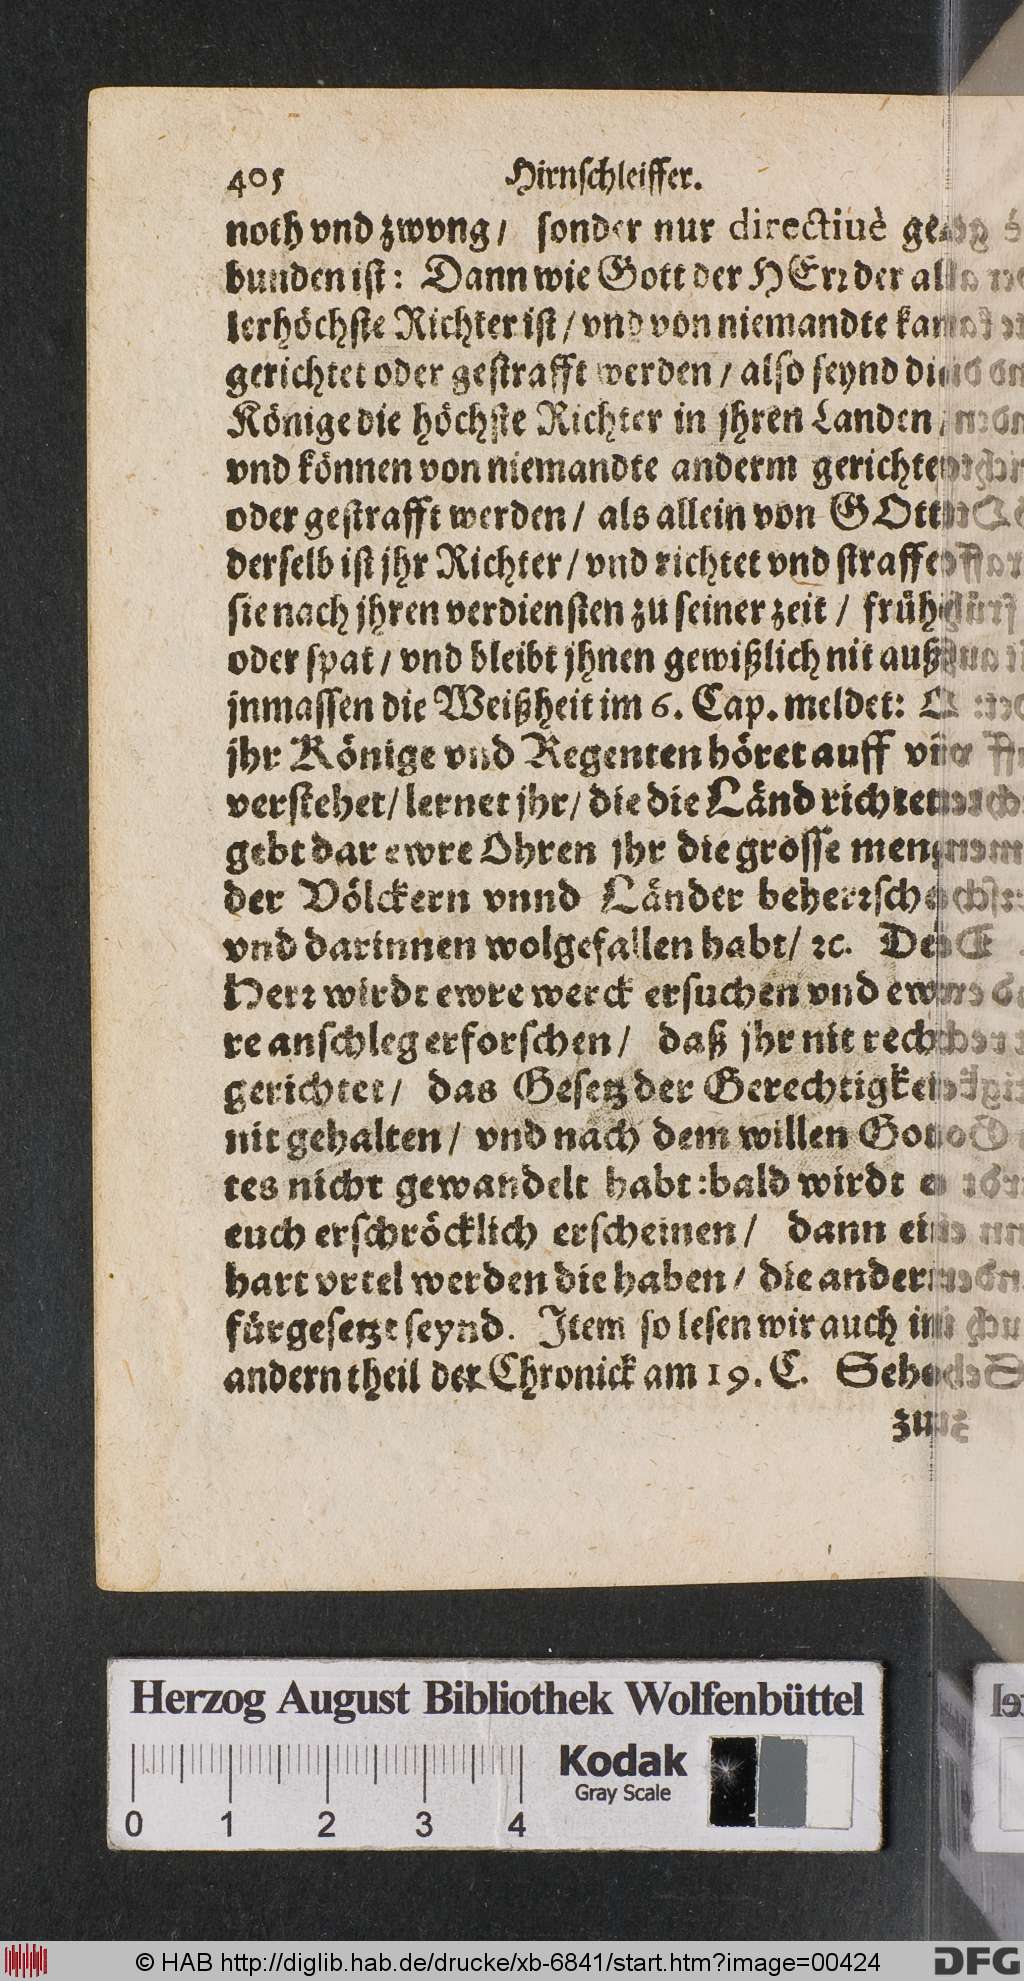 405 Hirnschleiffer.
noth vnd zwvng / sonder nur directiuè ge-
bunden ist: Dann wie Gott der HErr der al-
lerhöchste Richter ist / vnd von niemandte kan
gerichtet oder gestrafft werden / also seynd die
Könige die höchste Richter in jhren Landen /
vnd können von niemandte anderm gerichtet
oder gestrafft werden / als allein von GOtt
derselb ist jhr Richter / vnd richtet vnd straffet
sie nach jhren verdiensten zu seiner zeit / früh
oder spat / vnd bleibt jhnen gewißlich nit auß
jnmassen die Weißheit im 6. Cap. meldet: O
jhr Könige vnd Regenten höret auff vñ
verstehet / lernet jhr / die die Länd richtet
gebt dar ewre Ohren jhr die grosse meng
der Völckern vnnd Länder beherrschet
vnd darinnen wolgefallen habt / ꝛc. Der
Herr wirdt ewre werck ersuchen vnd ew-
re anschleg erforschen / daß jhr nit recht
gerichtet / das Gesetz der Gerechtigkeit
nit gehalten / vnd nach dem willen Got-
tes nicht gewandelt habt: bald wirdt er
euch erschröcklich erscheinen / dann ein
hart vrtel werden die haben / die andern
fürgesetzt seynd. Item so lesen wir auch im
andern theil der Chronick am 19. C. Sehet
zu
Herzog August Bibliothek Wolfenbüttel
0 1 2 3 4
Kodak
Gray Scale
© HAB http://diglib.hab.de/drucke/xb-6841/start.htm?image=00424
DFG